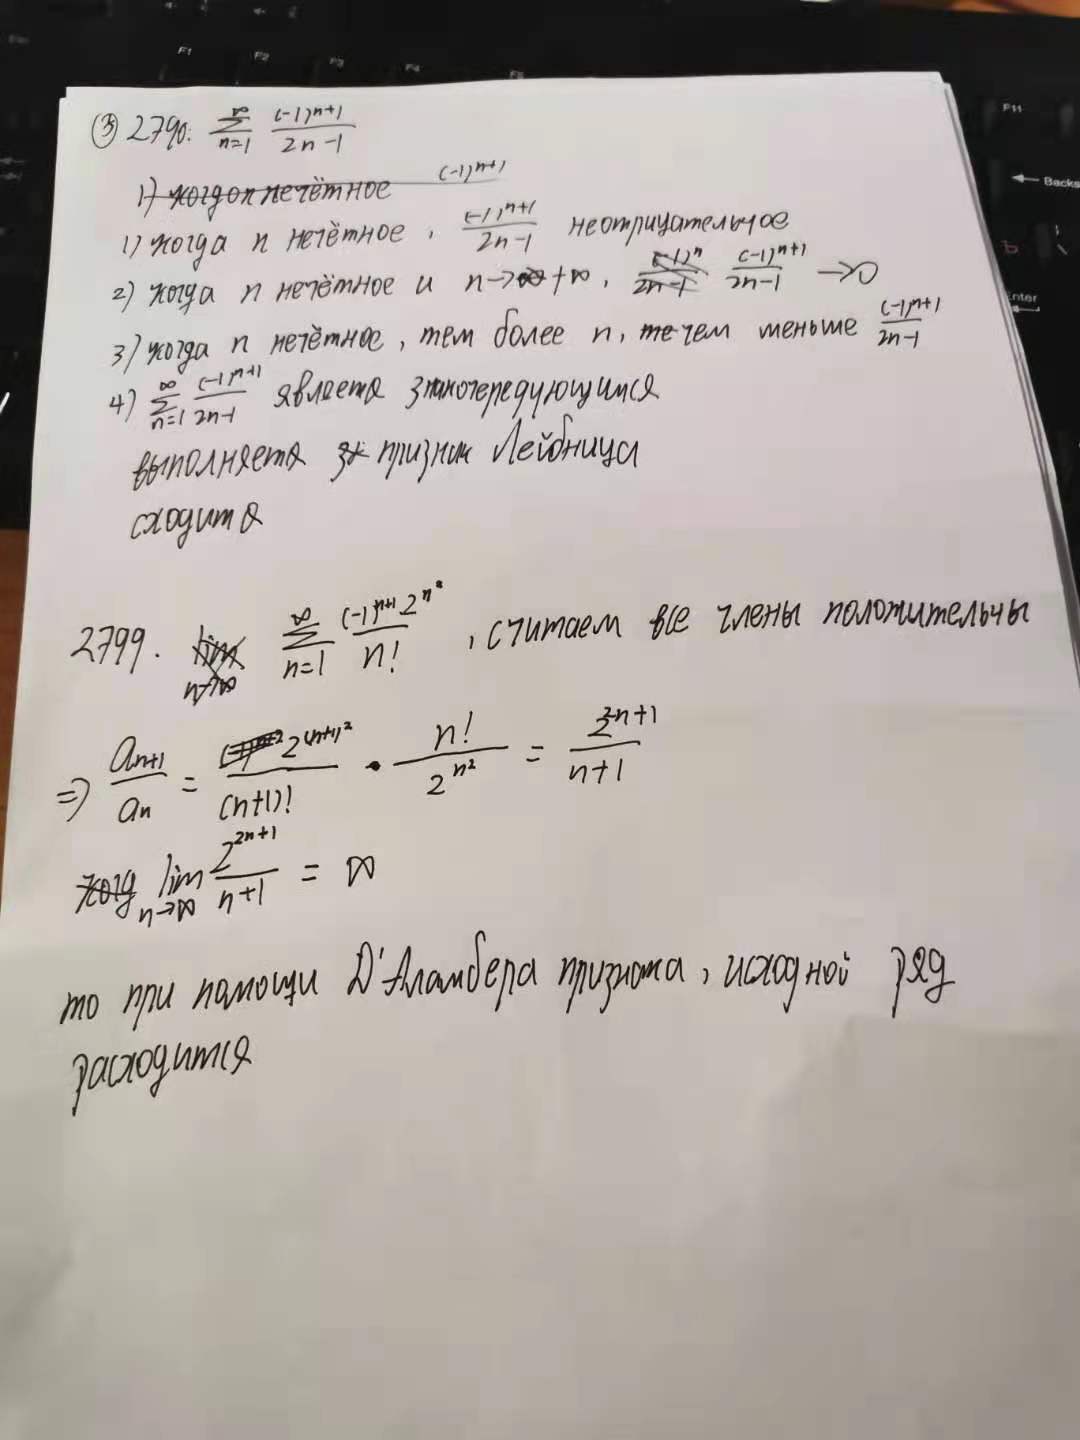 F1 F2 F3 F4 F5 F11
Backs
Enter
③ 2790. ∑_{n=1}^{∞} (-1)^{n+1}/(2n-1)
1) когда n нечётное (-1)^{n+1}
1) когда n нечётное, (-1)^{n+1}/(2n-1) неотрицательное
2) когда n нечётное и n→∞ +∞, (-1)^n/(2n-1) (-1)^{n+1}/(2n-1) →0
3) когда n нечётное, тем более n, те чем меньше (-1)^{n+1}/(2n-1)
4) ∑_{n=1}^{∞} (-1)^{n+1}/(2n-1) является знакочередующимся
выполняется зк признак Лейбница
сходится
2799. lim_{n→∞} ∑_{n=1}^{∞} (-1)^{n+1} 2^{n²}/n! , считаем все члены положительны
⇒ a_{n+1}/a_n = 2^{(n+1)²}/(n+1)! · n!/2^{n²} = 2^{2n+1}/(n+1)
когд lim_{n→∞} 2^{2n+1}/(n+1) = ∞
то при помощи D'Аламбера признака, исходной ряд
расходится